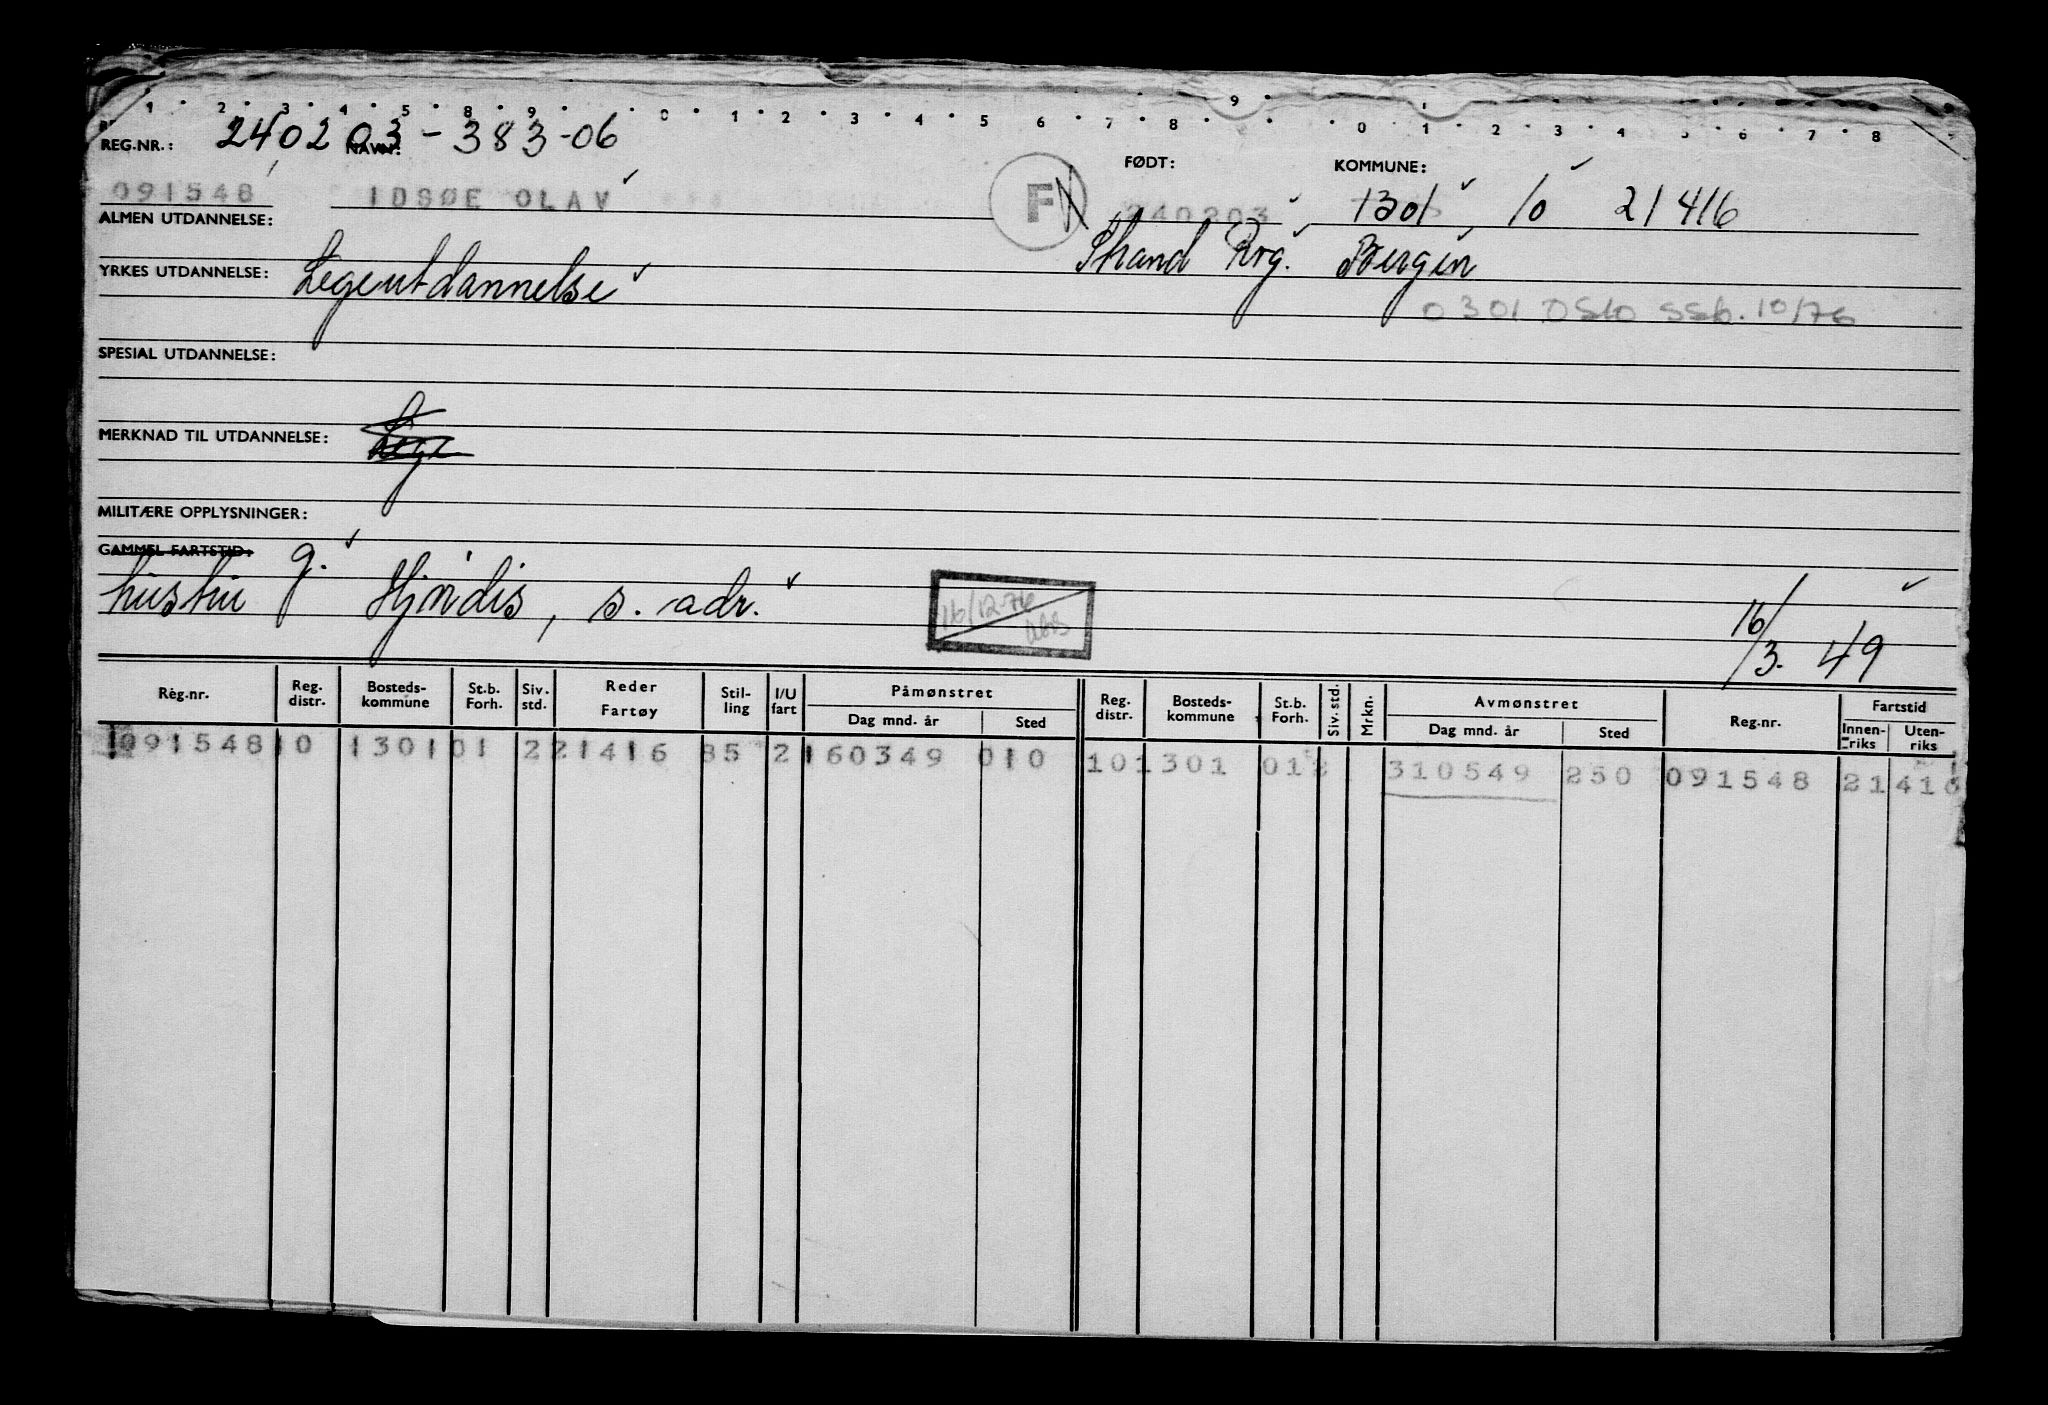 1 2 3 4 5 8 9 0 1 2 3 4 5 6 7 8 9 0 1 2 3 4 5 6 7 8
REG.NR.: 240203-383-06 NAVN:
FØDT: KOMMUNE:
091548 IDSØE OLAV F 240203 1301 10 21416
ALMEN UTDANNELSE: Strand Rog. Bergen
YRKES UTDANNELSE: Legeutdannelse
0301 OSLO SSB. 10/76
SPESIAL UTDANNELSE:
MERKNAD TIL UTDANNELSE: Lege
MILITÆRE OPPLYSNINGER:
GAMMEL FARTSTID: g.
hustru Hjördis, s. adr. 16/12-76 16/3. 49
Reg.nr. Reg. distr. Bosteds-kommune St.b. Forh. Siv. std. Reder Fartøy Stil-ling I/U fart Påmønstret Dag mnd. år Sted Reg. distr. Bosteds-kommune St.b. Forh. Siv. std. Mrkn. Avmønstret Dag mnd. år Sted Reg.nr. Fartstid Innen-riks Uten-riks
091548 10 1301 01 2 21416 85 2 160349 010 10 1301 01 2 310549 250 091548 21416